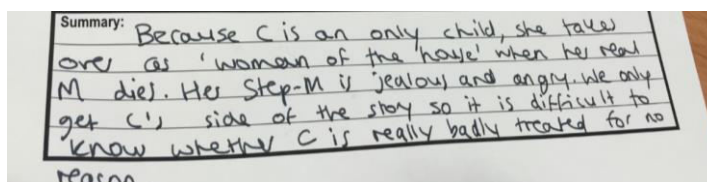 Summary: Because C is an only child, she takes
over as 'woman of the house' when her real
M dies. Her Step-M is jealous and angry. We only
get C's side of the story so it is difficult to
know whether C is really badly treated for no
reason